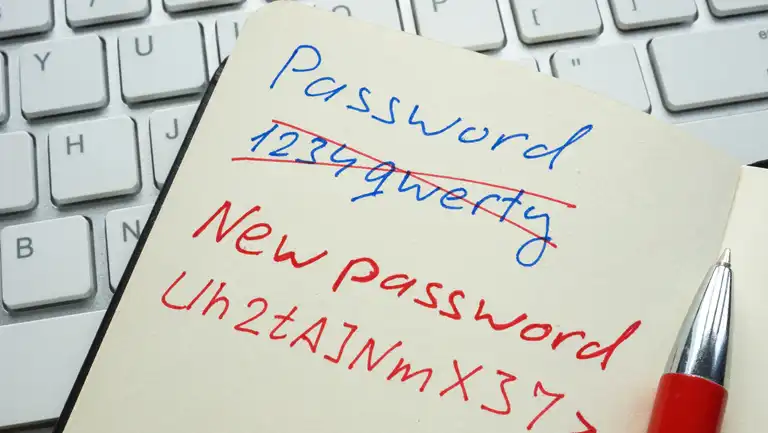 P [ ]
Y U "
H J
B N
Password
1234qwerty
New password
Uh2tAJNmX37